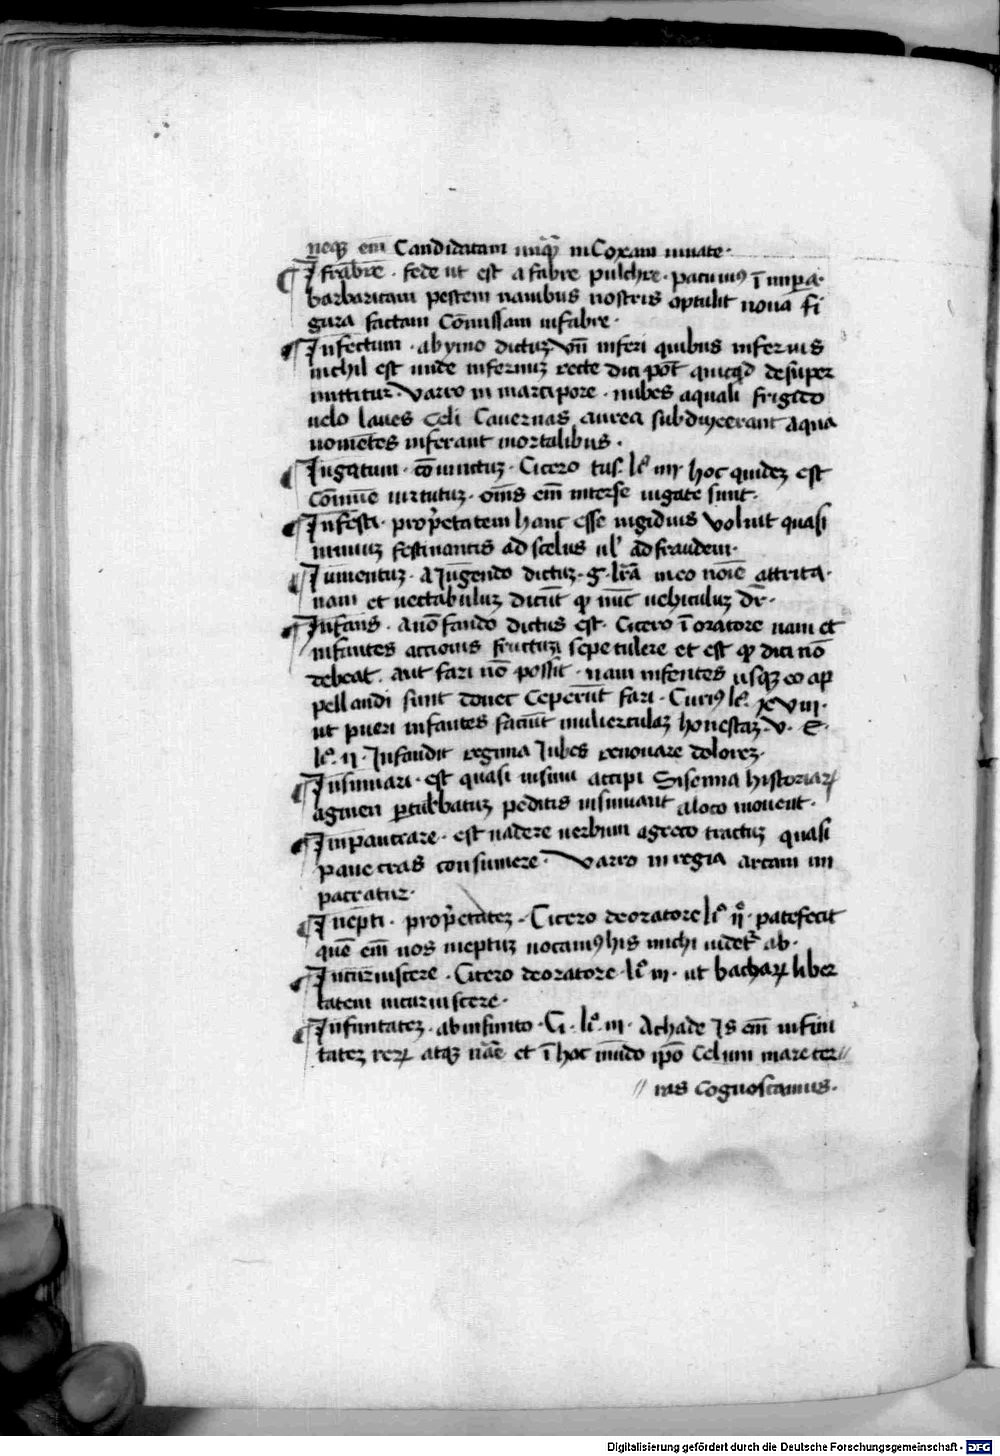 neqꝫ em̄ Candidatam unq̄ꝫ in Coxam iuuate·
¶ Ifrabre · fede ut est a fabre pulchre · pacuuiꝰ ī nip̄a·
barbaricam pestem nauibus nostris optulit noua fi
gura factam Cōmissam infabre·
¶ Infectum · ab ymo dictuꝫ Vn̄ inferi quibus inferius
nichil est unde infernuꝫ recte dici pōt quicq̄d desuper
mittitur· Varro in marcipore · nubes aquali frigido
uelo laues Celi Cauernas aurea subduxerant aqua
uomētes inferant mortalibus·
¶ Iugatum · cōiunctuꝫ · Cicero tus· lꝰ iiii hoc quideꝫ est
Cōmūe uirtutuꝫ · om̄s em̄ interse iugate sunt·
¶ Infesti · prop̄etatem hanc esse nigidius voluit quasi
nimiuꝫ festinantis ad scelus ul̄ ad fraudem·
¶ Iumentuꝫ · a Iungendo dictuꝫ · g · lr̄a in eo noīe attrita·
nam et uectabuluꝫ dicūt qꝫ nūc uehiculuꝫ dr̄·
¶ Infans · a nō fando dictus est · Cicero ī oratore nam et
infantes actionis fructuꝫ sepe tulere et est qꝫ dici nō
debeat · aut fari nō possit · nam infentes usqꝫ eo ap
pellandi sunt donec Ceperūt fari · Curiꝰ lꝰ. xviii·
ut pueri infantes faciūt mulierculaꝫ honestaꝫ · v · E ·
lꝰ. ii · Infandū regina Iubes renouare doloreꝫ·
¶ Insinuari · est quasi insinu accipi Sisenna historiaꝝ
agmen pturbatuꝫ peditis insinuant aloco mouent·
¶ Inpancrare · est uadere uerbum a greco tractuꝫ quasi
pancras consumere · Varro in regia arcam im
pacratur·
¶ Inepti · prop̄etateꝫ · Cicero deoratore lꝰ ii · patefecit
quē em̄ nos ineptuꝫ uocamꝰ his michi uidetʳ ab·
¶ Incuruiscere · Cicero deoratore · lꝰ iii · ut bachaꝝ liber
tatem incuruiscere·
¶ Infinitateꝫ · ab infinito · Ci · lꝰ. iii · Achade Is em̄ infini
tateꝫ reꝝ atqꝫ nāe et ī hoc mūdo ip̄o Celum mare ter//
// ras cognoscamus·
Digitalisierung gefördert durch die Deutsche Forschungsgemeinschaft - DFG